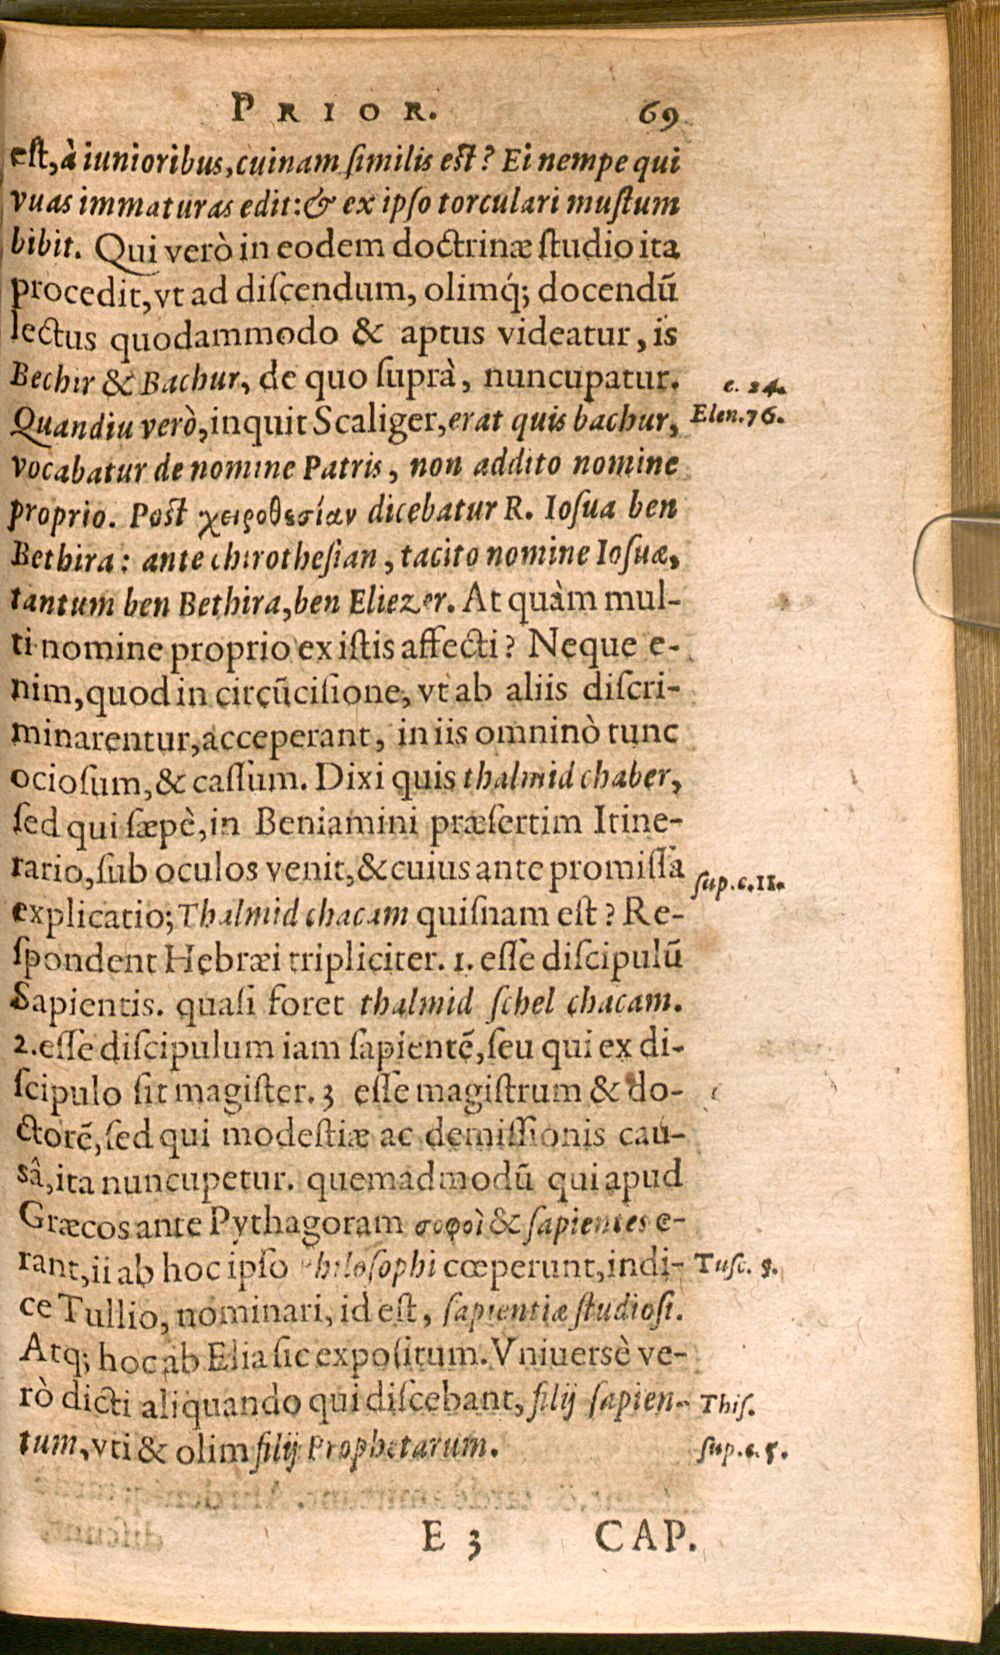 PRIOR. 69
eſt, à iunioribus, cuinam ſimilis eſt? Ei nempe qui
vuas immaturas edit: & ex ipſo torculari muſtum
bibit. Qui verò in eodem doctrinæ ſtudio ita
procedit, vt ad diſcendum, olimq́; docendũ
lectus quodammodo & aptus videatur, is
Bechir & Bachur, de quo ſuprà, nuncupatur. c. 24.
Quandiu verò, inquit Scaliger, erat quis bachur, Elen. 76.
vocabatur de nomine Patris, non addito nomine
proprio. Poſt χειροθεσίαν dicebatur R. Ioſua ben
Bethira: ante chirotheſian, tacito nomine Ioſuæ,
tantum ben Bethira, ben Eliezer. At quàm mul-
ti nomine proprio ex iſtis affecti? Neque e-
nim, quod in circũciſione, vt ab aliis diſcri-
minarentur, acceperant, in iis omninò tunc
ocioſum, & caſſum. Dixi quis thalmid chaber,
ſed qui ſæpè, in Beniamini præſertim Itine-
rario, ſub oculos venit, & cuius ante promiſſa ſup. c. 11.
explicatio; Thalmid chacam quiſnam eſt? Re-
ſpondent Hebræi tripliciter. 1. eſſe diſcipulũ
Sapientis. quaſi foret thalmid ſchel chacam.
2. eſſe diſcipulum iam ſapientẽ, ſeu qui ex di-
ſcipulo ſit magiſter. 3 eſſe magiſtrum & do-
ctorẽ, ſed qui modeſtiæ ac demiſſionis cau-
sâ, ita nuncupetur. quemadmodũ qui apud
Græcos ante Pythagoram σοφοὶ & ſapientes e-
rant, ii ab hoc ipſo Philoſophi cœperunt, indi- Tuſc. 5.
ce Tullio, nominari, id eſt, ſapientiæ ſtudioſi.
Atq; hoc ab Elia ſic expoſitum. Vniuersè ve-
rò dicti aliquando qui diſcebant, filij ſapien- Thiſ.
tum, vti & olim filij Prophetarum. ſup. c. 5.
E 3 CAP.